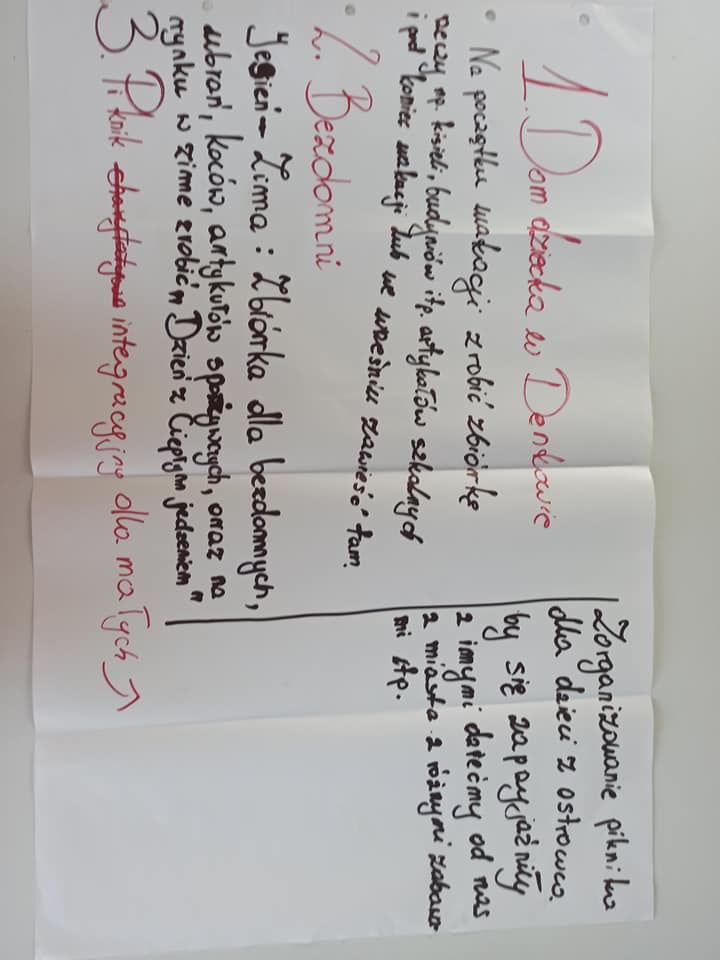 1. Dom dziecka w Denkowie
Na początku wakacji zrobić zbiórkę
rzeczy np. kisieli, budyniów itp. artykałów szkolnych
i pod koniec wakacji lub we wrześniu zawieść tam.
2. Bezdomni
Jesień - Zima : Zbiórka dla bezdomnych,
ubrań, koców, artykułów spożywczych, oraz na
rynku w zimne zrobić "Dzień z Ciepłym jedzeniem"
3. Piknik charytatywny integracyjny dla małych →
Zorganizowanie pikniku
dla dzieci z ostrowca.
by się zaprzyjaźniły
z innymi dziećmy od nas
z miasta z różnymi zabawa
mi itp.